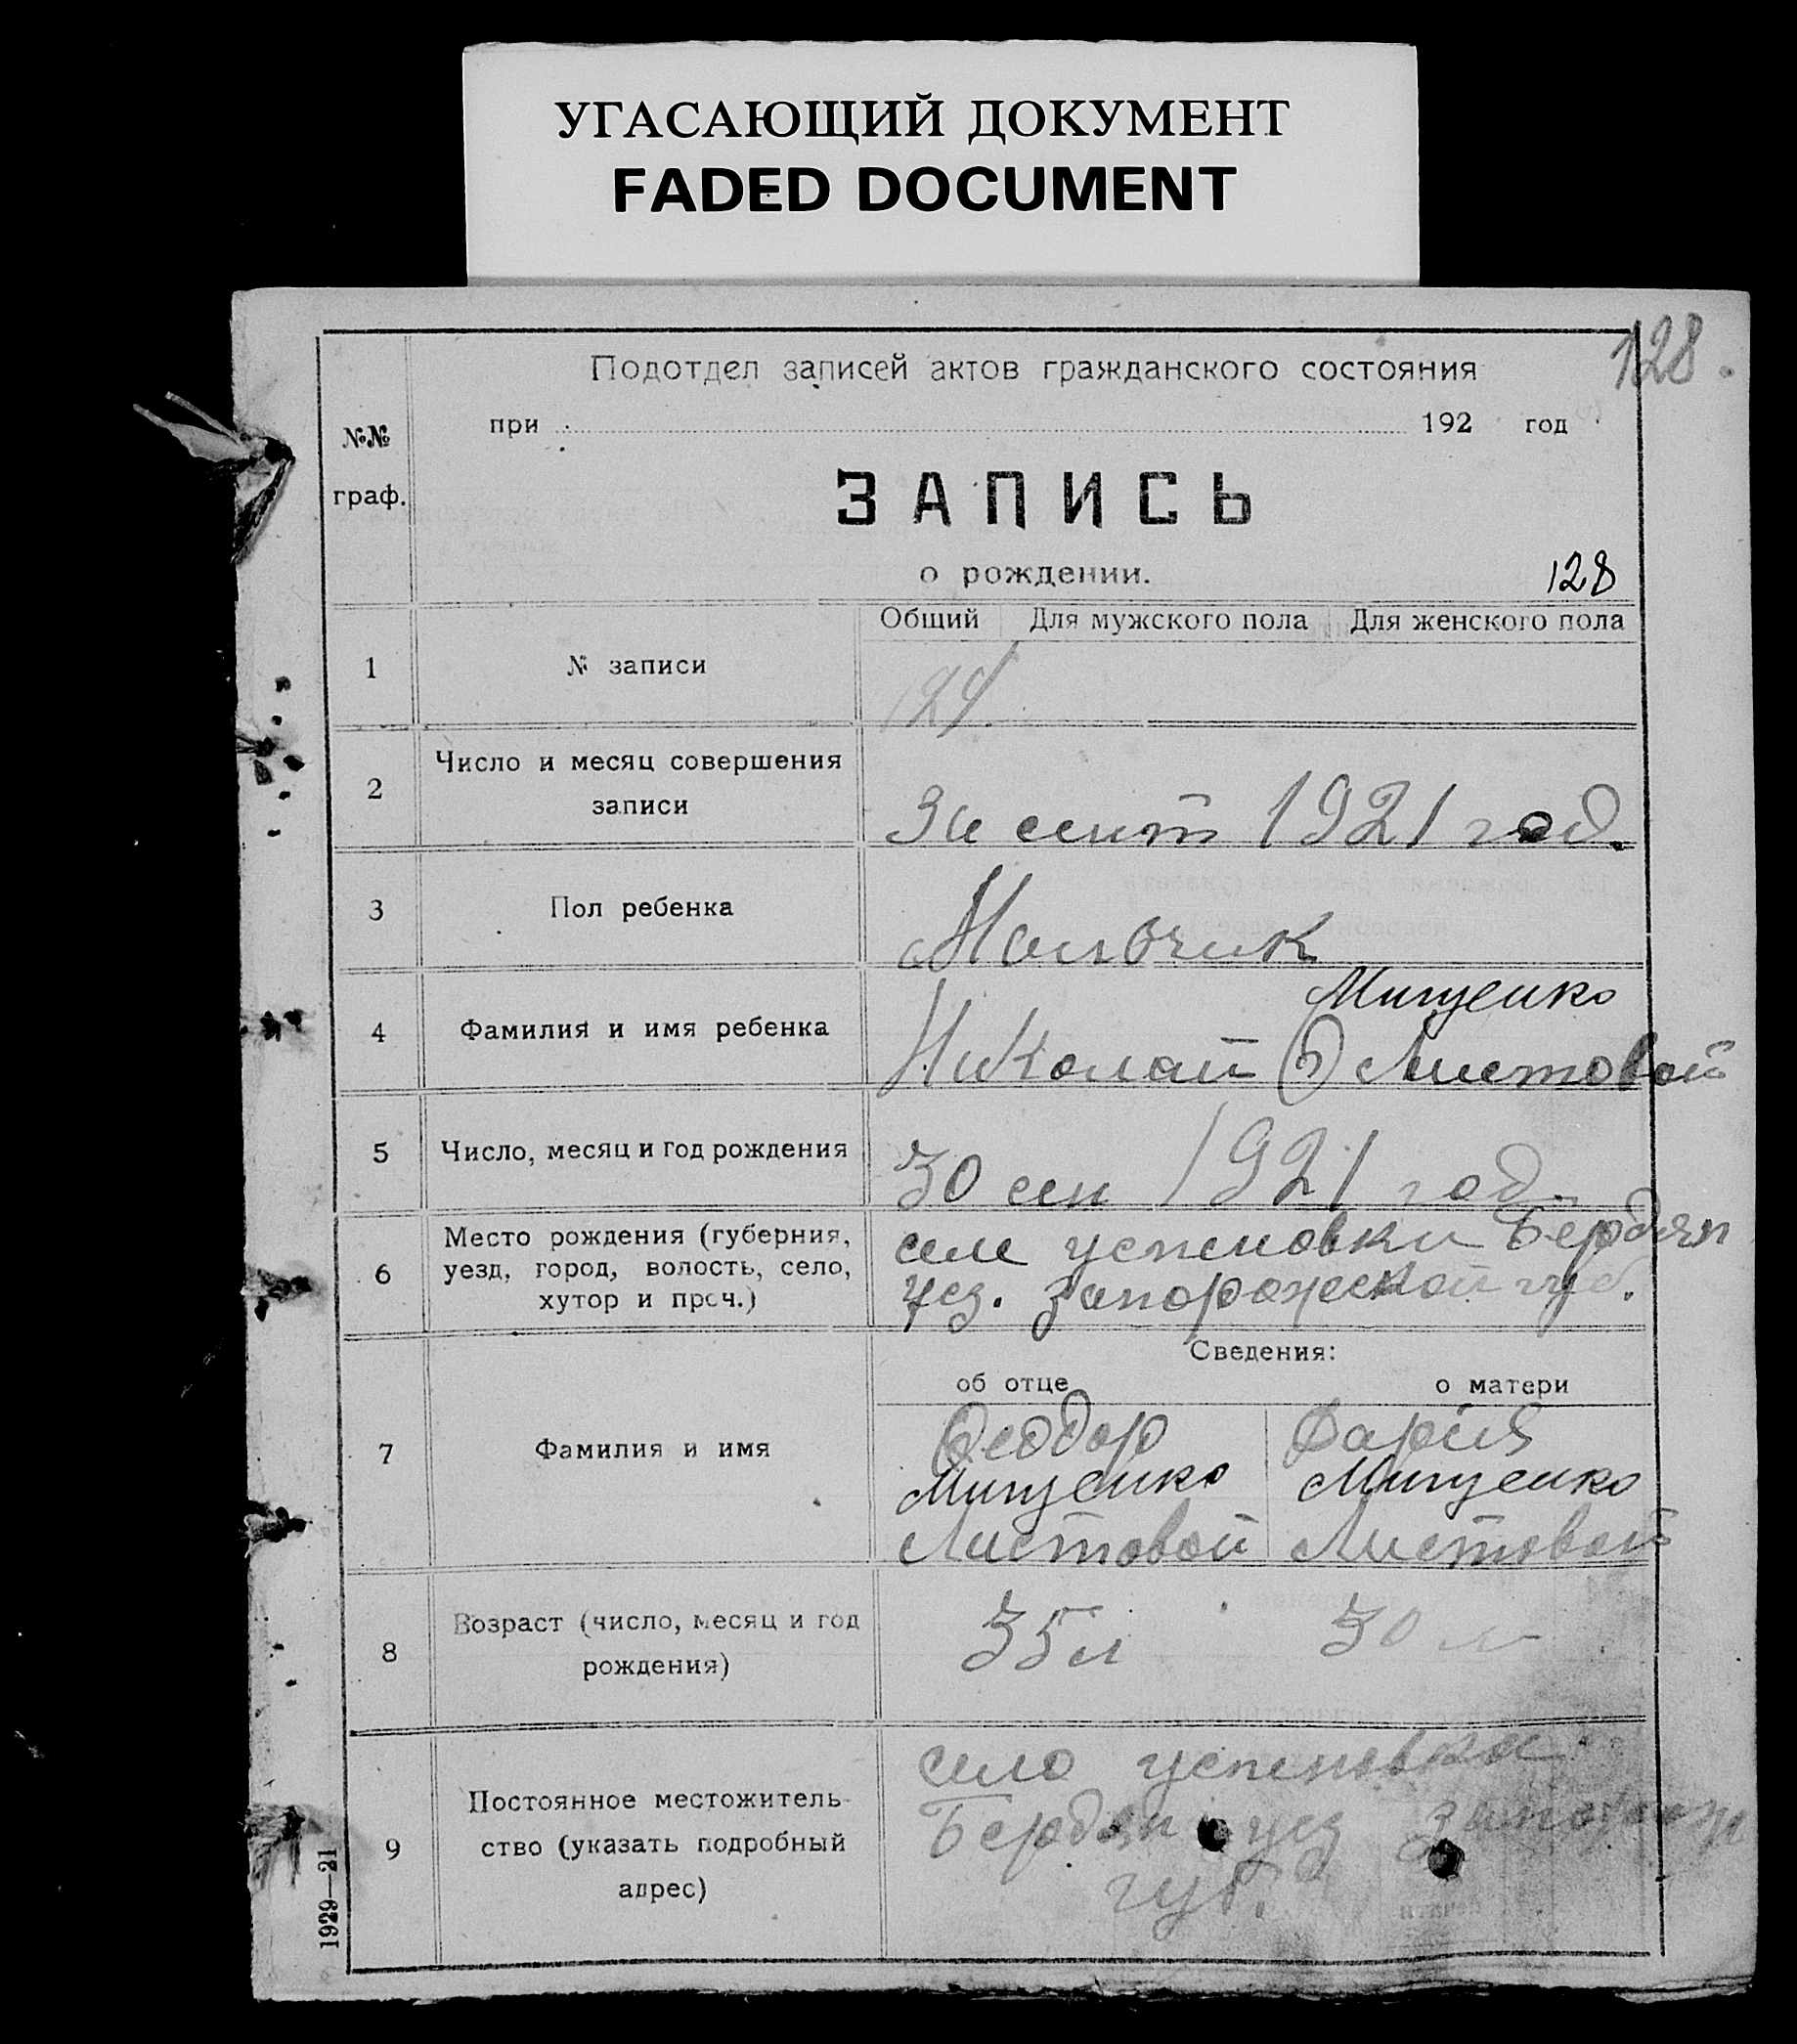 УГАСАЮЩИЙ ДОКУМЕНТ
FADED DOCUMENT
128.
Подотдел записей актов гражданского состояния
при 192 год
№№
граф.
ЗАПИСЬ
о рождении.
128
Общий Для мужского пола Для женского пола
1 № записи
2 Число и месяц совершения
записи
сент 1921 год.
3 Пол ребенка
Мальчик
4 Фамилия и имя ребенка
Мищенко
Николай Листовой
5 Число, месяц и год рождения
30 сен 1921 год.
6 Место рождения (губерния,
уезд, город, волость, село,
хутор и проч.)
селе успеновки Бердян
уез. запорожской губ.
Сведения:
об отце о матери
7 Фамилия и имя
Феодор Дарія
Мищенко Мищенко
Листовой Листовой
8 Возраст (число, месяц и год
рождения)
35 л 30 л
9 Постоянное местожитель-
ство (указать подробный
адрес)
село успеновка
Бердян уез запорож
губ.
1929—21